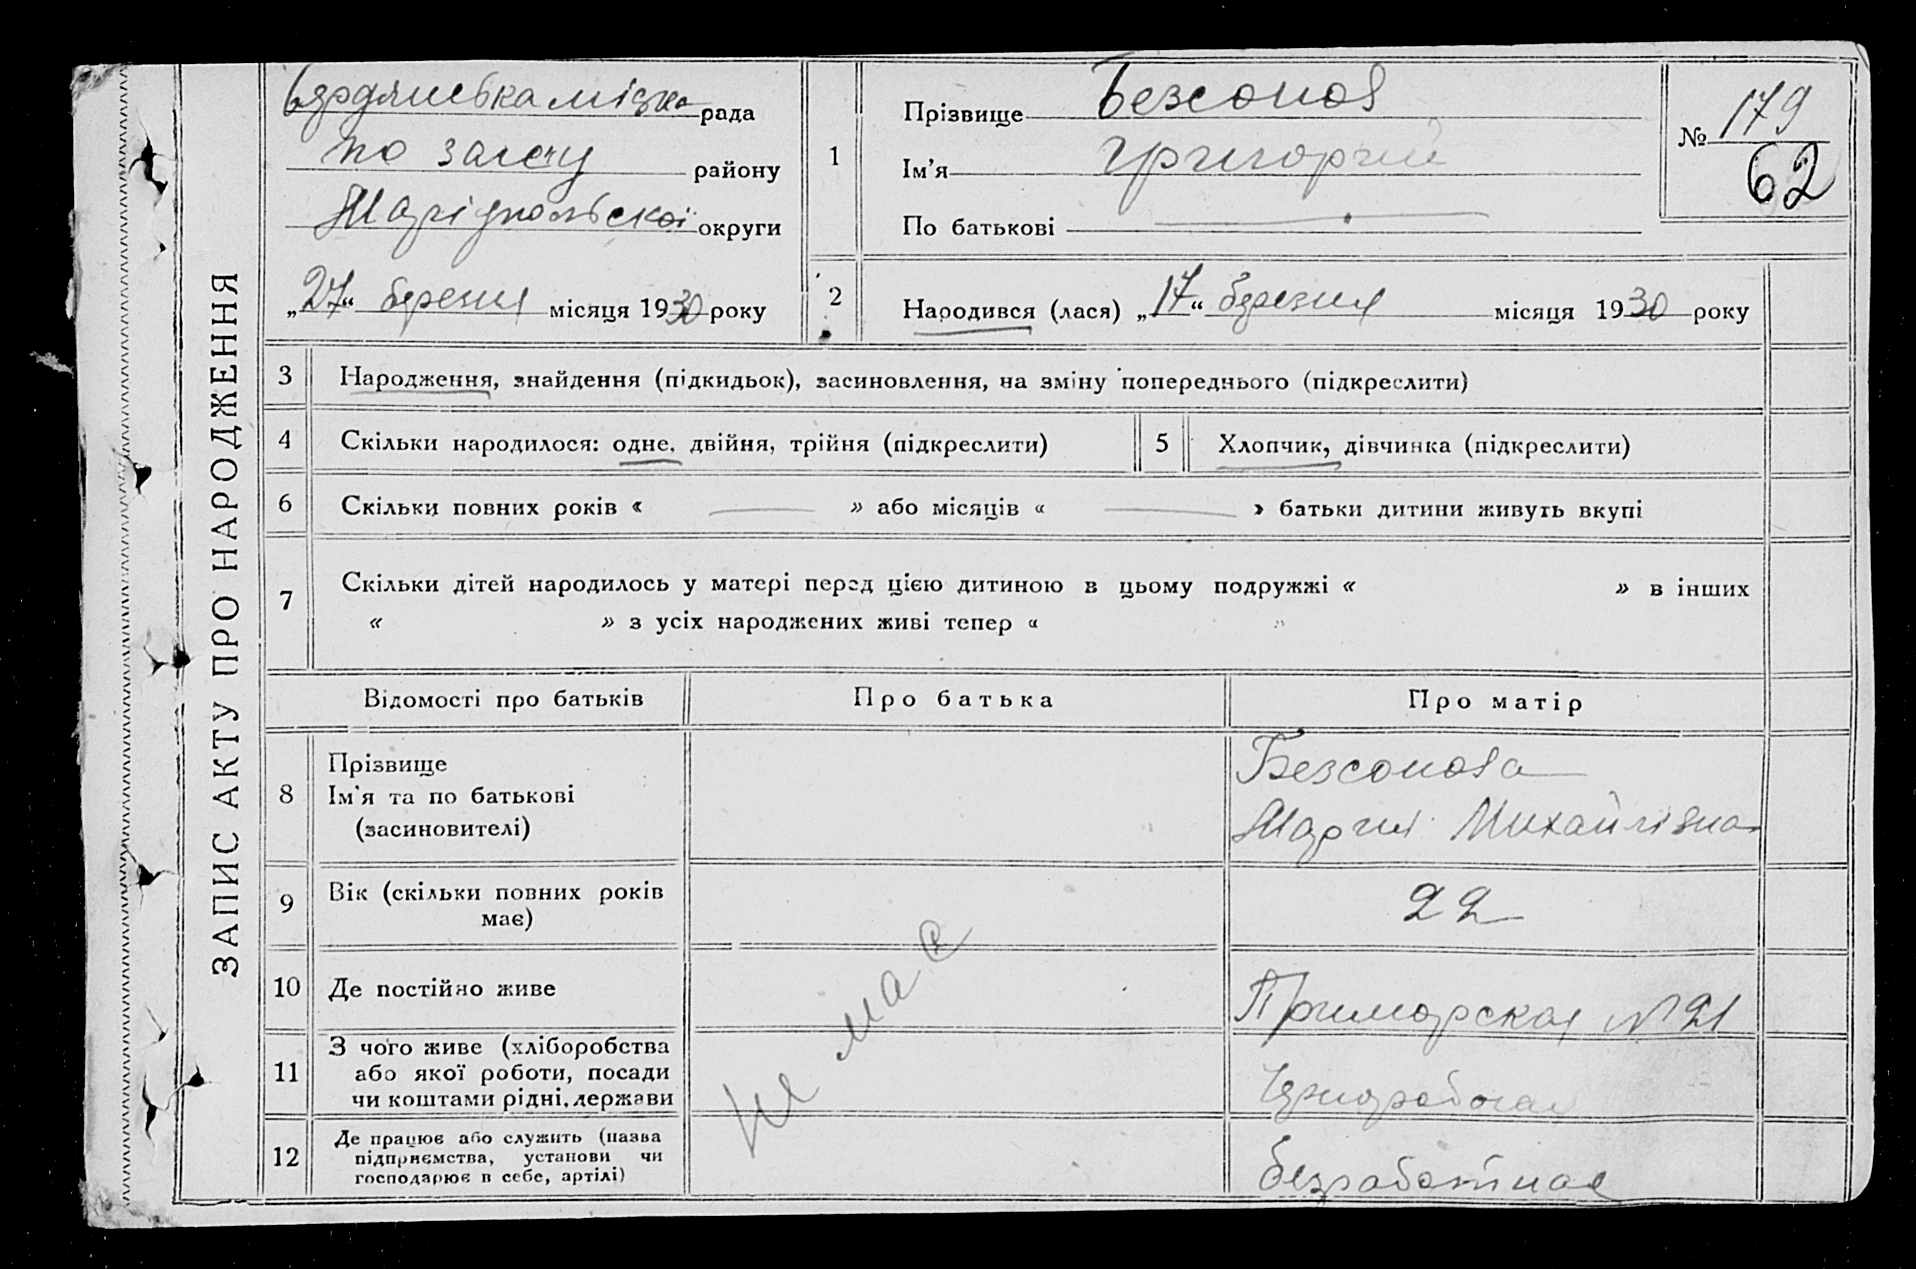 ЗАПИС АКТУ ПРО НАРОДЖЕННЯ
Бердянська міська рада
по загсу району
Маріупольскої округи
„27“ березня місяця 1930 року
1
Прізвище Безсонов
Ім'я Григорий
По батькові —
№ 179
62
2
Народився (лася) „17“ березня місяця 1930 року
3 Народження, знайдення (підкидьок), засиновлення, на зміну попереднього (підкреслити)
4 Скільки народилося: одне, двійня, трійня (підкреслити)
5 Хлопчик, дівчинка (підкреслити)
6 Скільки повних років « — » або місяців « — » батьки дитини живуть вкупі
7 Скільки дітей народилось у матері перед цією дитиною в цьому подружжі « » в інших
« » з усіх народжених живі тепер « »
Відомості про батьків Про батька Про матір
8 Прізвище
Ім'я та по батькові
(засиновителі)
Безсонова
Мария Михайлівна
9 Вік (скільки повних років
має)
22
10 Де постійно живе
Приморская № 21
11 З чого живе (хліборобства
або якої роботи, посади
чи коштами рідні, держави
Чернорабочая
12 Де працює або служить (назва
підприємства, установи чи
господарює в себе, артілі)
безработная
Не має